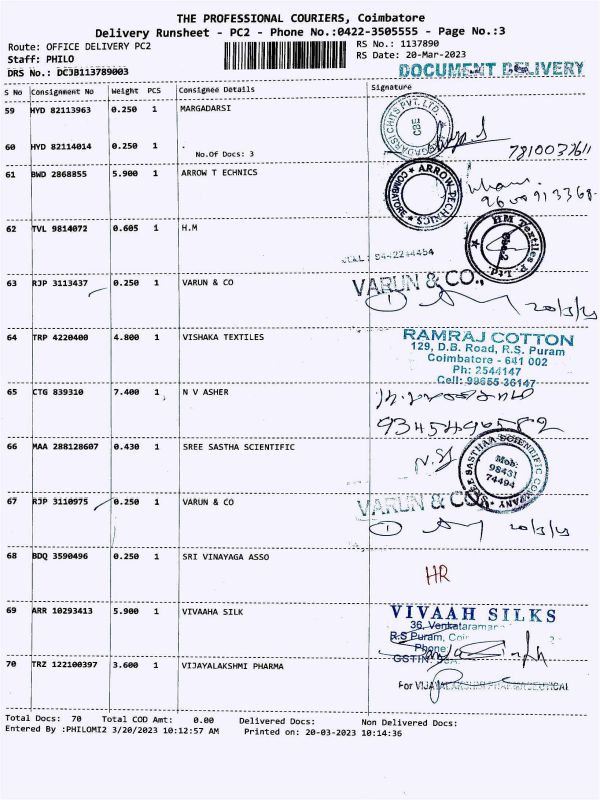 THE PROFESSIONAL COURIERS, Coimbatore
Delivery Runsheet - PC2 - Phone No.:0422-3505555 - Page No.:3
Route: OFFICE DELIVERY PC2
RS No.: 1137890
Staff: PHILO
RS Date: 20-Mar-2023
DRS No.: DCJB113789003
DOCUMENT DELIVERY
S No Consignment No Weight PCS Consignee Details Signature
59 HYD 82113963 0.250 1 MARGADARSI
60 HYD 82114014 0.250 1 .
No.Of Docs: 3
7810037611
61 BWD 2868855 5.900 1 ARROW T ECHNICS
ARROW TECHNICS COIMBATORE
62 TVL 9814072 0.605 1 H.M
HM Textiles P. Ltd. CBE-2
63 RJP 3113437 0.250 1 VARUN & CO
VARUN & CO.,
20/3/23
64 TRP 4220400 4.800 1 VISHAKA TEXTILES
RAMRAJ COTTON
129, D.B. Road, R.S. Puram
Coimbatore - 641 002
Ph: 2544147
Cell: 99655 36147
65 CTG 839310 7.400 1 N V ASHER
66 MAA 288128607 0.430 1 SREE SASTHA SCIENTIFIC
SREE SASTHAA SCIENTIFIC COMPANY
Mob:
98431
74494
67 RJP 3110975 0.250 1 VARUN & CO
VARUN & CO
20/3/23
68 BDQ 3590496 0.250 1 SRI VINAYAGA ASSO
HR
69 ARR 10293413 5.900 1 VIVAAHA SILK
VIVAAH SILKS
36, Venkataramana
R.S Puram,
Phone
GSTIN:
70 TRZ 122100397 3.600 1 VIJAYALAKSHMI PHARMA
For VIJAYALAKSHMI PHARMACEUTICAL
Total Docs: 70 Total COD Amt: 0.00 Delivered Docs: Non Delivered Docs:
Entered By :PHILOMI2 3/20/2023 10:12:57 AM Printed on: 20-03-2023 10:14:36